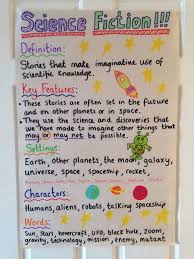 Science Fiction!!!
Definition:
Stories that make imaginative use of
scientific knowledge.
Key Features:
• These stories are often set in the future
and on other planets or in space.
• They use the science and discoveries that
we have made to imagine other things that
may or may not be possible.
Settings:
Earth, other planets, the moon, galaxy,
universe, space, spaceship, rocket,
Characters:
Humans, aliens, robots, talking spaceship
Words:
Sun, Stars, hovercraft, UFO, black hole, Zoom,
gravity, technology, mission, enemy, mutant